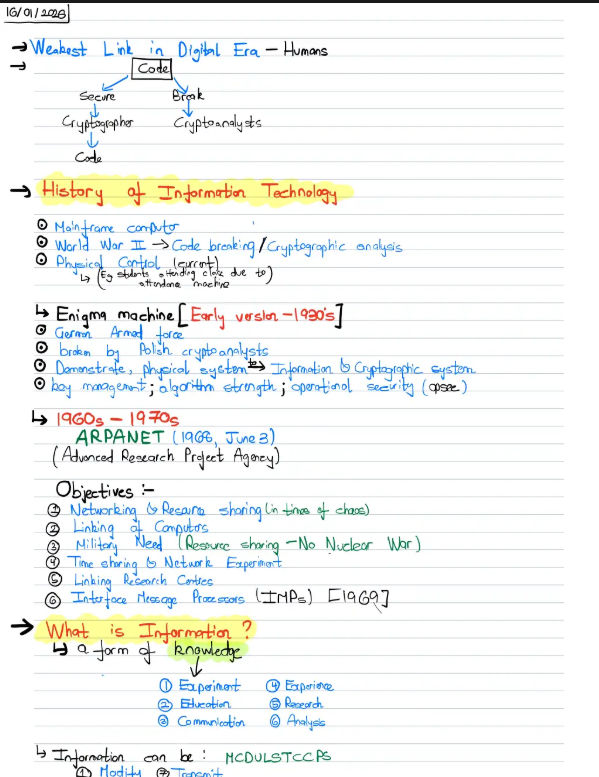 16/01/2026
→ Weakest Link in Digital Era — Humans
→ Code
Secure Break
Cryptographer Cryptoanalysts
Code
→ History of Information Technology
Mainframe computer
World War II → Code breaking / Cryptographic analysis
Physical Control (current)
↳ (Eg students attending class due to
attendance machine)
↳ Enigma machine [Early version - 1930's]
German Armed force
broken by Polish cryptoanalysts
Demonstrate, physical system → Information & Cryptographic system
key management; algorithm strength; operational security (opsec)
↳ 1960s - 1970s
ARPANET (1968, June 3)
(Advanced Research Project Agency)
Objectives :-
① Networking & Resource sharing (in times of chaos)
② Linking of Computers
③ Military Need (Resource sharing - No Nuclear War)
④ Time sharing & Network Experiment
⑤ Linking Research Centres
⑥ Interface Message Processors (IMPs) [1969]
→ What is Information?
↳ a form of knowledge
① Experiment ④ Experience
② Education ⑤ Research
③ Communication ⑥ Analysis
↳ Information can be : MCDULSTCCPS
① Modify ⑦ Transmit